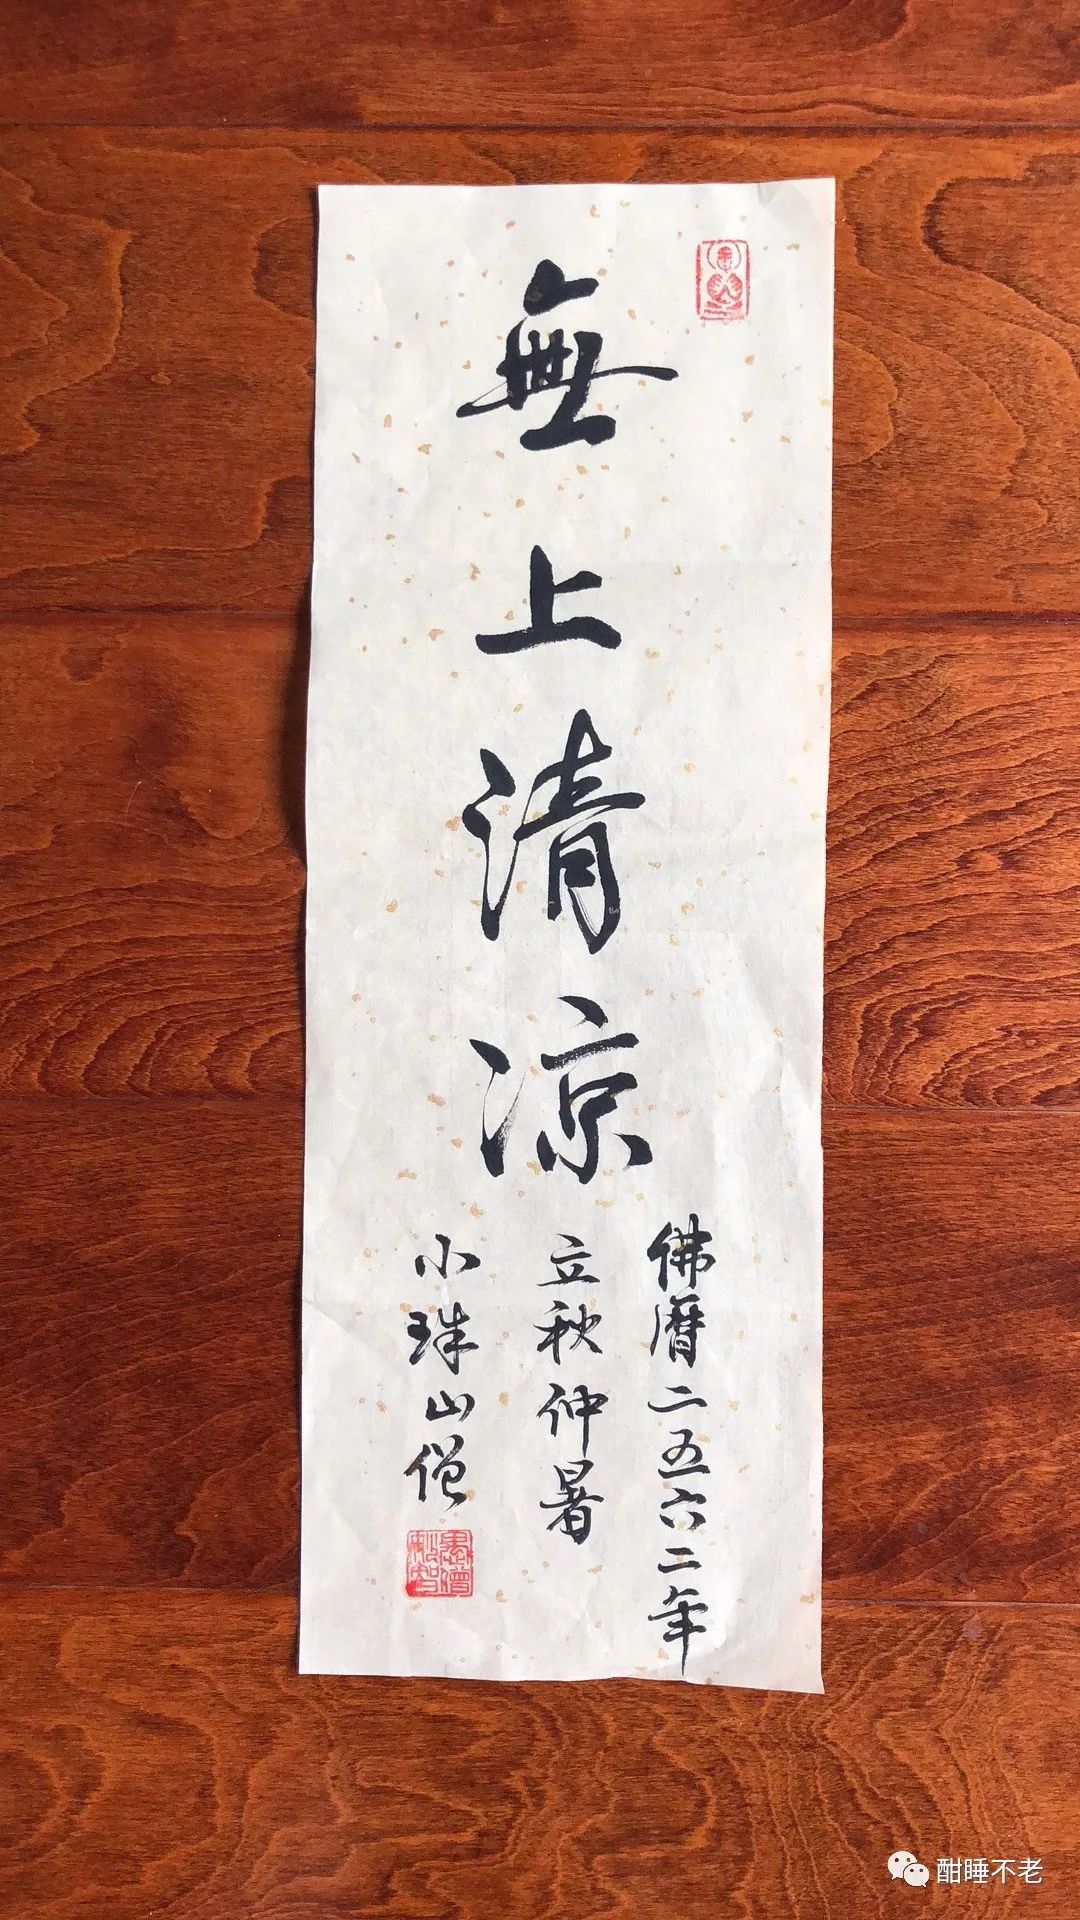 無上清凉
佛曆二五六二年
立秋仲暑
小珠山僧
酣睡不老